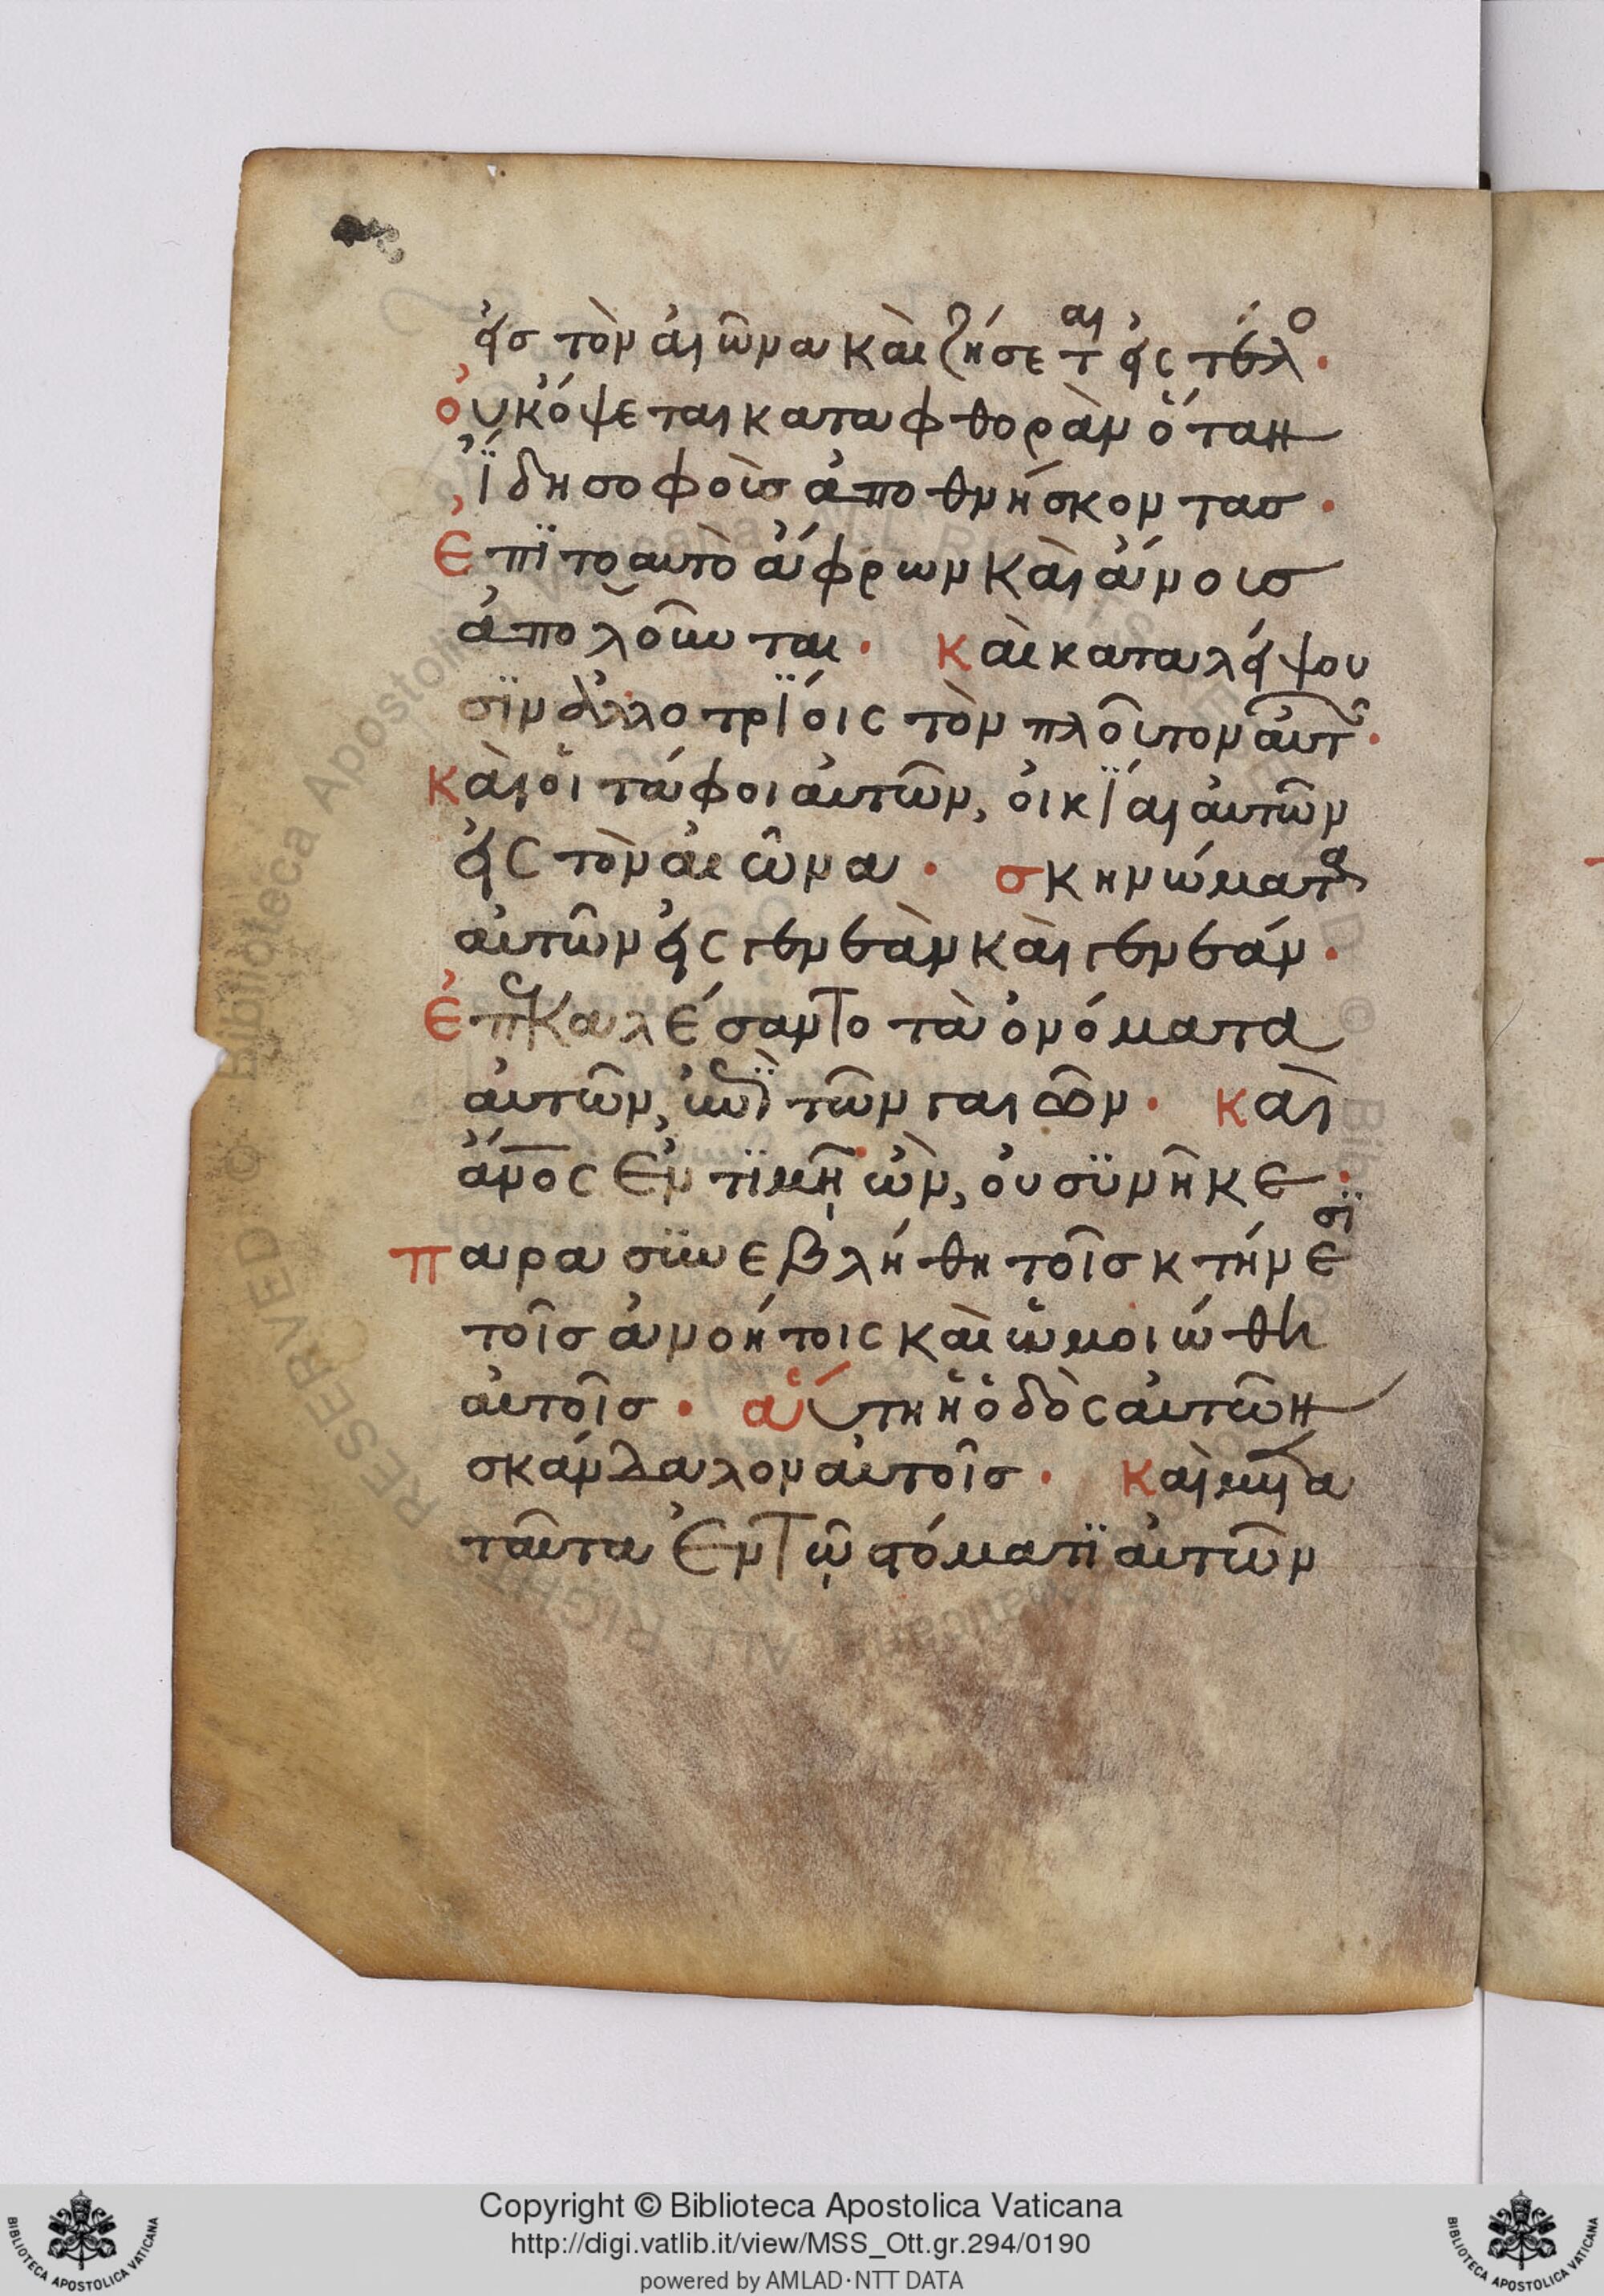 εἰς τὸν αἰῶνα καὶ ζήσεται εἰς τέλο·
οὐκ ὄψεται καταφθορὰν ὅταν
ἴδη σοφοὺσ ἀποθνήσκοντασ·
Επϊτοαυτὸ ἄφρων καὶ ἄνοισ
ἀπολοῦνται· Καὶ καταλείψου
σϊν ἀλλοτρΐοις τὸν πλοῦτον αὐτ·
Καὶ οἱ τάφοι αὐτῶν, οἰκΐαι αὐτῶν
εἰς τὸν αἰῶνα· σκηνώματα
αὐτῶν εἰς γενεὰν καὶ γενεάν·
Ἐπεκαλέσαντο τὰ ὀνόματα
αὐτῶν, ἐπῒ τῶν γαιῶν· Καὶ
ἄνος ἐν τϊμῆ ὢν, οὐ σϋνῆκε·
Παρασϋνεβλήθη τοῖσ κτήνεσϊ
τοῖσ ἀνοήτοις καὶ ὡμοιώθη
αὐτοῖσ· αὕτη ἡ ὁδὸς αὐτῶν
σκάνδαλον αὐτοῖσ· Καὶ μετα
ταῦτα ἐν τῷ στόματϊ αὐτῶν
Copyright © Biblioteca Apostolica Vaticana
http://digi.vatlib.it/view/MSS_Ott.gr.294/0190
powered by AMLAD·NTT DATA
BIBLIOTECA APOSTOLICA VATICANA
BIBLIOTECA APOSTOLICA VATICANA